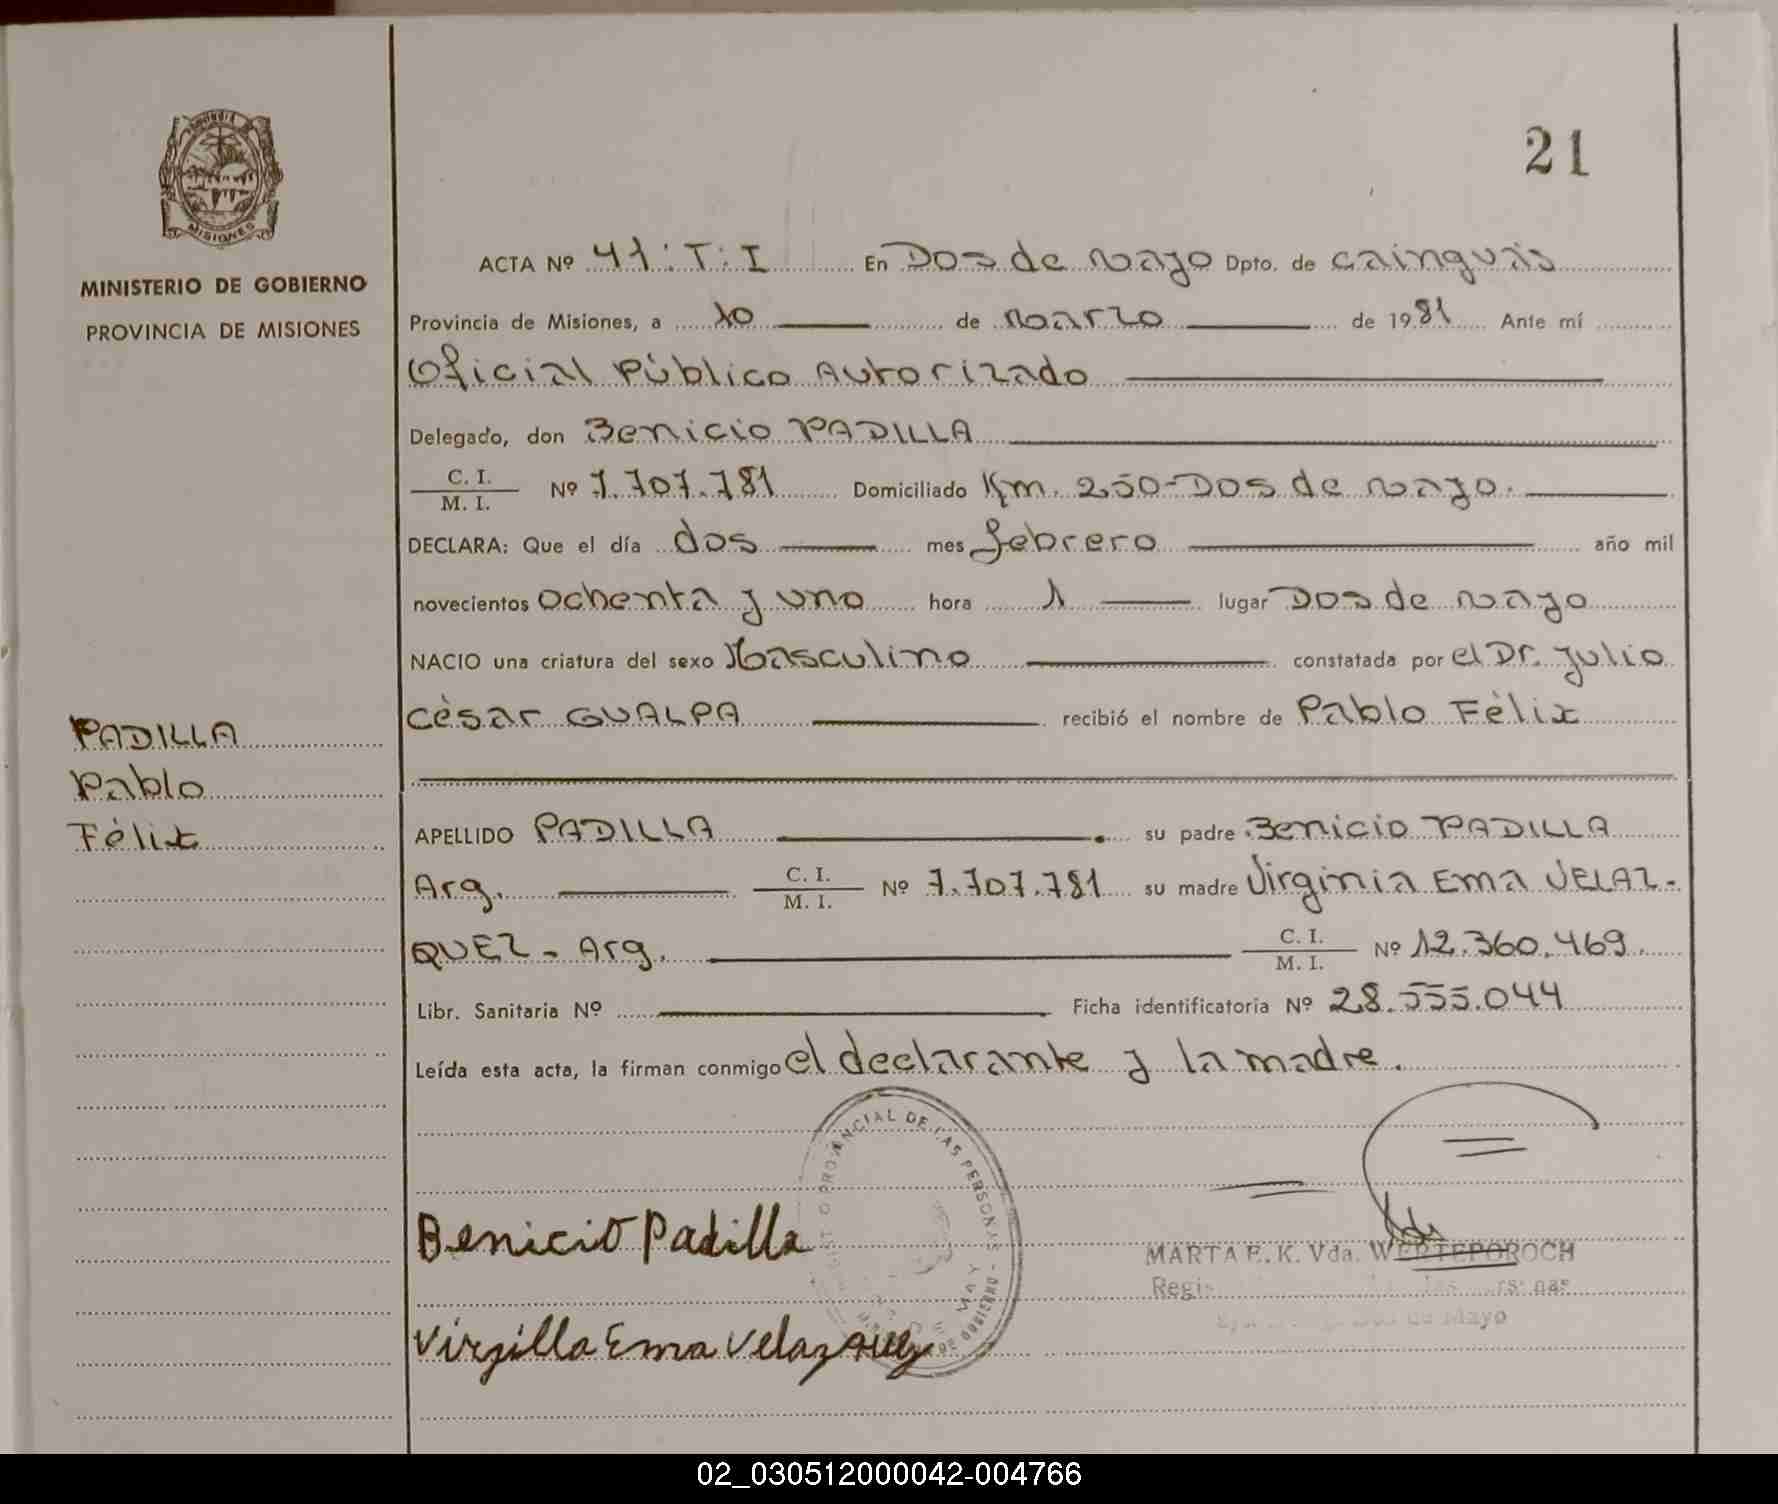 21
MISIONES
MINISTERIO DE GOBIERNO
PROVINCIA DE MISIONES
ACTA Nº 41:T:I En Dos de Mayo Dpto. de Cainguás
Provincia de Misiones, a 10 de Marzo de 1981 Ante mí
Oficial Público Autorizado
Delegado, don Benicio PADILLA
C. I.
M. I. Nº 7.707.781 Domiciliado Km. 250-Dos de Mayo.
DECLARA: Que el día dos mes febrero año mil
novecientos ochenta y uno hora 1 lugar Dos de Mayo
NACIO una criatura del sexo Masculino constatada por el Dr. Julio
César GUALPA recibió el nombre de Pablo Félix
PADILLA
Pablo
Félix
APELLIDO PADILLA su padre Benicio PADILLA
Arg. C. I.
M. I. Nº 7.707.781 su madre Virginia Ema VELAZ-
QUEZ - Arg. C. I.
M. I. Nº 12.360.469
Libr. Sanitaria Nº Ficha identificatoria Nº 28.555.044
Leída esta acta, la firman conmigo el declarante y la madre.
PROVINCIAL DE LAS PERSONAS
Benicio Padilla
MARTA E. K. Vda. WERTEPOROCH
Virgilla Ema Velazquez
02_030512000042-004766